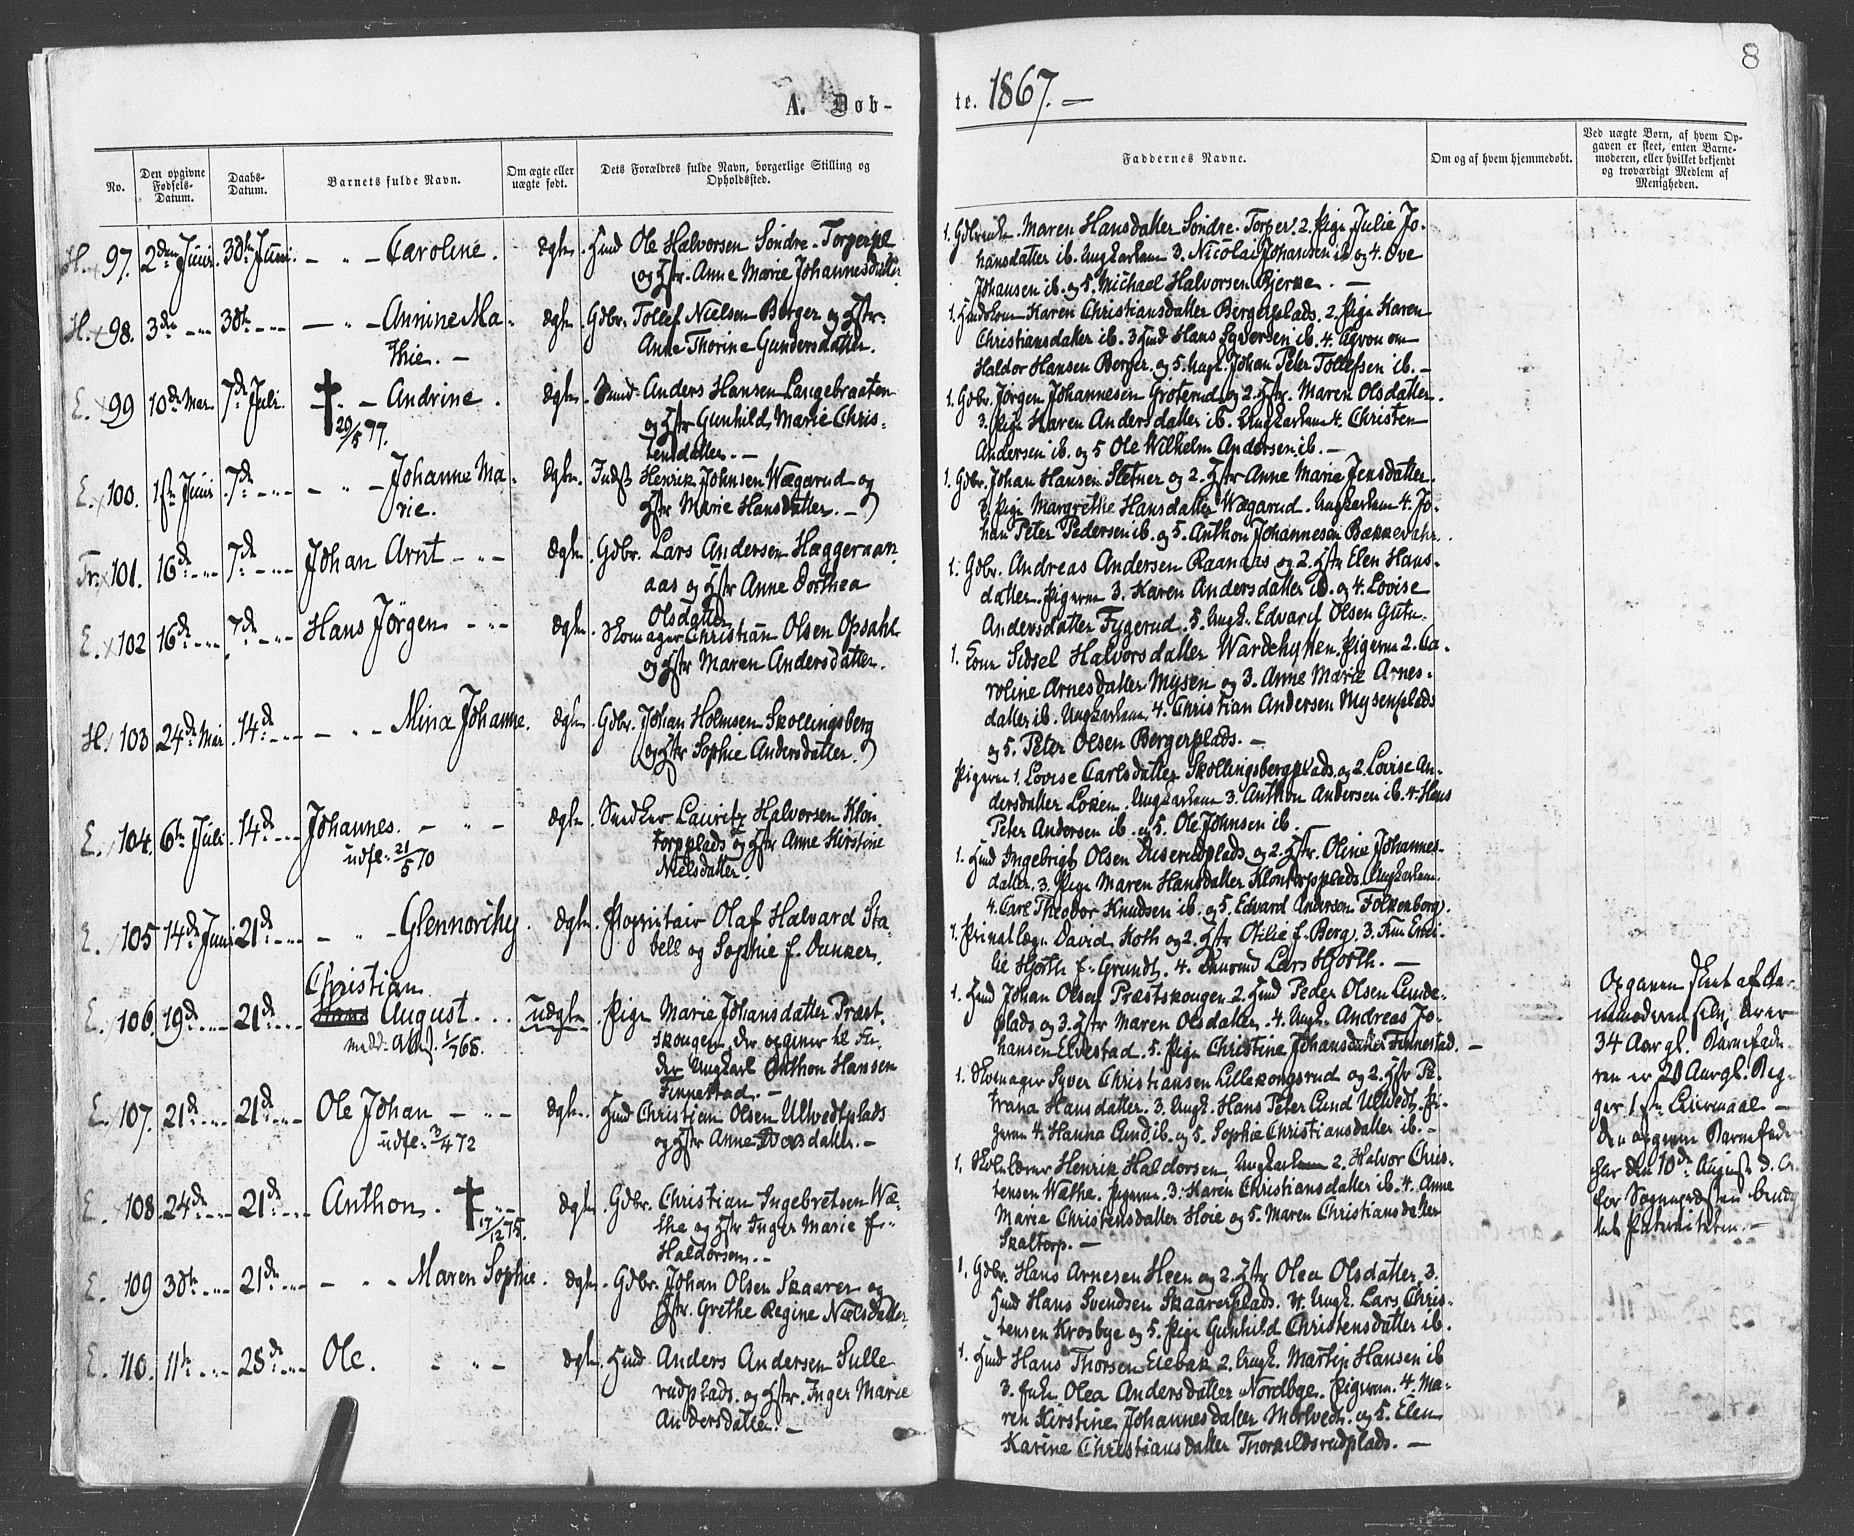 A. Døb-
No.
Den opgivne Fødsels-Datum.
Daabs-Datum.
Barnets fulde Navn.
Om ægte eller uægte født.
Dets Forældres fulde Navn, borgerlige Stilling og Opholdssted.
H. 97. 2den Juni. 30te Juni. — " — Caroline. Ægte. Huusmd Ole Halvorsen Søndre-Torperpl
og Hstr. Anne Marie Johannesdatter
H. 98. 3de — " — 30te — " — — " — Annine Ma- Ægte. Gdbr. Tollef Nielsen Berger og Hstr.
thie. — Anne Thorine Gundersdatter.
E. 99 10de Mai. 7de Juli. — " — Andrine. Ægte. Huusmd Anders Hansen Langebraaten
20/5 77. og Hstr Gunhild Marie Chris-
tensdatter. —
E. 100. 1ste Juni 7de — " — — " — Johanne Ma- Ægte. Inds. Henrik Johnsen Wægarud og
rie. Hstr Marie Hansdatter. —
Fr. 101. 16de — " — 7de — " — Johan Arnt — " — Ægte. Gdbr. Lars Andersen Hæggeraan-
aas og Hstr Anne Dorthea
Olsdatter
E. 102 16de — " — 7de — " — Hans Jörgen — " — Ægte. Skomager Christian Olsen Opsahl
og Hstr Maren Andersdatter.
H. 103 24de Mai. 14de — " — — " — Mina Johanne. Ægte. Gdbr. Johan Holmsen Skollingsberg
og Hstr Sophie Andersdatter.
E. 104. 6te Juli. 14de — " — Johannes. — " — Ægte. Snedker Lauritz Halvorsen Klon-
udfl: 21/5 70 torpplads og Hstr Anne Kirstine
Nielsdatter.
E. 105 14de Juni 21de — " — — " — Glennorchy. Ægte. Propritair Olaf Halvard Sta-
bell og Sophie f. Dunker.
Christian
E. 106. 19de — " — 21de — " — Hans August. Uægte. Pige Marie Johansdatter Præst-
medd: att. 1/7 68. skougen, der opgiver til Fa-
der Ungkarl Anthon Hansen
Finnestad. —
E. 107. 21de — " — 21de — " — Ole Johan — " — Ægte. Huusmd Christian Olsen Ulvedtplads
udfl: 3/4 72 og Hstr Anne datter. —
E. 108. 24de — " — 21de — " — Anthon. — " — Ægte. Gdbr. Christian Ingebretsen Wæ-
17/12 75. the og Hstr Inger Marie f.
Haldorsen. —
E. 109 30te — " — 21de — " — — " — Maren Sophie. Ægte. Gdbr. Johan Olsen Skaarer og
Hstr. Grethe Regine Nielsdatter.
E. 110. 11te — " — 28de — " — Ole. — " — Ægte. Huusmd Anders Andersen Sulle
rudplads. og Hstr. Inger Marie
Andersdatter. —
te. 1867. —
8
Faddernes Navne.
Om og af hvem hjemmedøbt.
Ved uægte Børn, af hvem Op-
gaven er skeet, enten Barne-
moderen, eller hvilket bekjendt
og troværdigt Medlem af
Menigheden.
1. Gdbrenke Maren Hansdatter Søndre-Torper. 2. Pige Julie Jo-
hansdatter ib. Ungkarlene 3. Nicolai Johansen ib og 4. Ove
Johansen ib. og 5. Michael Halvorsen Bjerke. —
1. Karen Christiansdatter Bergerplads. 2. Pige Karen
Christiansdatter ib. 3 Huusmd Hans Syversen ib. 4.
Haldor Hansen Berger. og 5. Ungk. Johan Peter Tollefsen ib. —
1. Gdbr. Jørgen Johannesen Groterud og 2. Hstr. Maren Olsdatter.
3. Pige Karen Andersdatter ib. Ungkarlene 4. Christen
Andersen ib. og 5 Ole Wilhelm Andersen ib. —
1. Gdbr. Johan Hansen Sletner og 2. Hstr Anne Marie Jensdatter.
3. Pige Margrethe Hansdatter Wægarud. Ungkarlene 4. Jo-
han Peter Pedersen ib. og 5. Anthon Johannesen Bakkevahr.
1. Gdbr. Andreas Andersen Raanaas og 2. Hstr Elen Hans-
datter. Pigerne 3. Karen Andersdatter ib. og 4. Lovise
Andersdatter Fygerud. 5. Ungk. Edvard Olsen Gutu.
1. Kone Sidsel Halvorsdatter Wardehytten. Pigerne 2. Ca-
roline Arnesdatter Mysen og 3. Anne Marie Arnes-
datter ib. Ungkarlene 4. Christian Andersen Mysenplads
og 5. Peter Olsen Bergerplads. —
Pigerne 1. Lovise Carlsdatter Skollingsbergplads og 2. Lovise An-
dersdatter Løken. Ungkarlene 3. Anthon Andersen ib. 4. Hans
Peter Andersen ib. og 5. Ole Johnsen ib. —
1. Huusmd Ingebrigt Olsen Huserudplads og 2. Hstr. Oline Johannes-
datter. 3. Pige Maren Hansdatter Klontorpplads. Ungkarlene
4. Carl Theodor Knudsen ib. og 5. Edvard Andersen Folkenborg.
1. David Koth og 2. Hstr Otilie f. Berg. 3. Fru Emi-
lie Hjorth f. Grundt. 4. Lars Hjorth. —
1. Huusmd Johan Olsen Præstskougen 2. Huusmd Peder Olsen Lunde-
plads og 3. Hstr Maren Olsdatter. 4. Ungk. Andreas Jo-
hansen Elvestad. 5. Pige Christine Johansdatter Finnestad. —
1. Skomager Syver Christiansen Lillekongsrud og 2. Hstr Pe-
trana Hansdatter. 3. Ungk. Hans Peter Lund Ulvedt. Pi-
gerne 4. Hanna Lund ib. og 5. Sophie Christiansdatter ib. —
1. Skolelærer Henrik Haldorsen. Ungkarlene 2. Halvor Chris-
tensen Wæthe. Pigerne 3. Karen Christiansdatter ib. 4. Anne
Marie Christensdatter Hoie og 5. Maren Christiansdatter
Skaltorp. —
1. Gdbr. Hans Arnesen Heen og 2. Hstr Olea Olsdatter. 3.
Huusmd Hans Svendsen Skaarerplads. 4. Ungk. Lars Chris-
tensen Krosbye og 5. Pige Gunhild Christensdatter ib.
1. Huusmd Hans Thorsen Elebak 2. Ungk. Martin Hansen ib
3. Enke Olea Andersdatter Nordbye. Pigerne 4. Ma-
ren Kirstine Johannesdatter Molvedt. og 5. Elen
Karine Christiansdatter Thorkildsrudplads. —
Opgaven skeet af Bar-
nemoderen selv, hver
34 Aar gl. Barnefade-
ren er 20 Aar gl. Beg-
ges 1ste Leiermaal —
Den opgivne Barnefader
har den 10de August d. A.
for Sognepræsten bekjg
tet Paterniteten. —